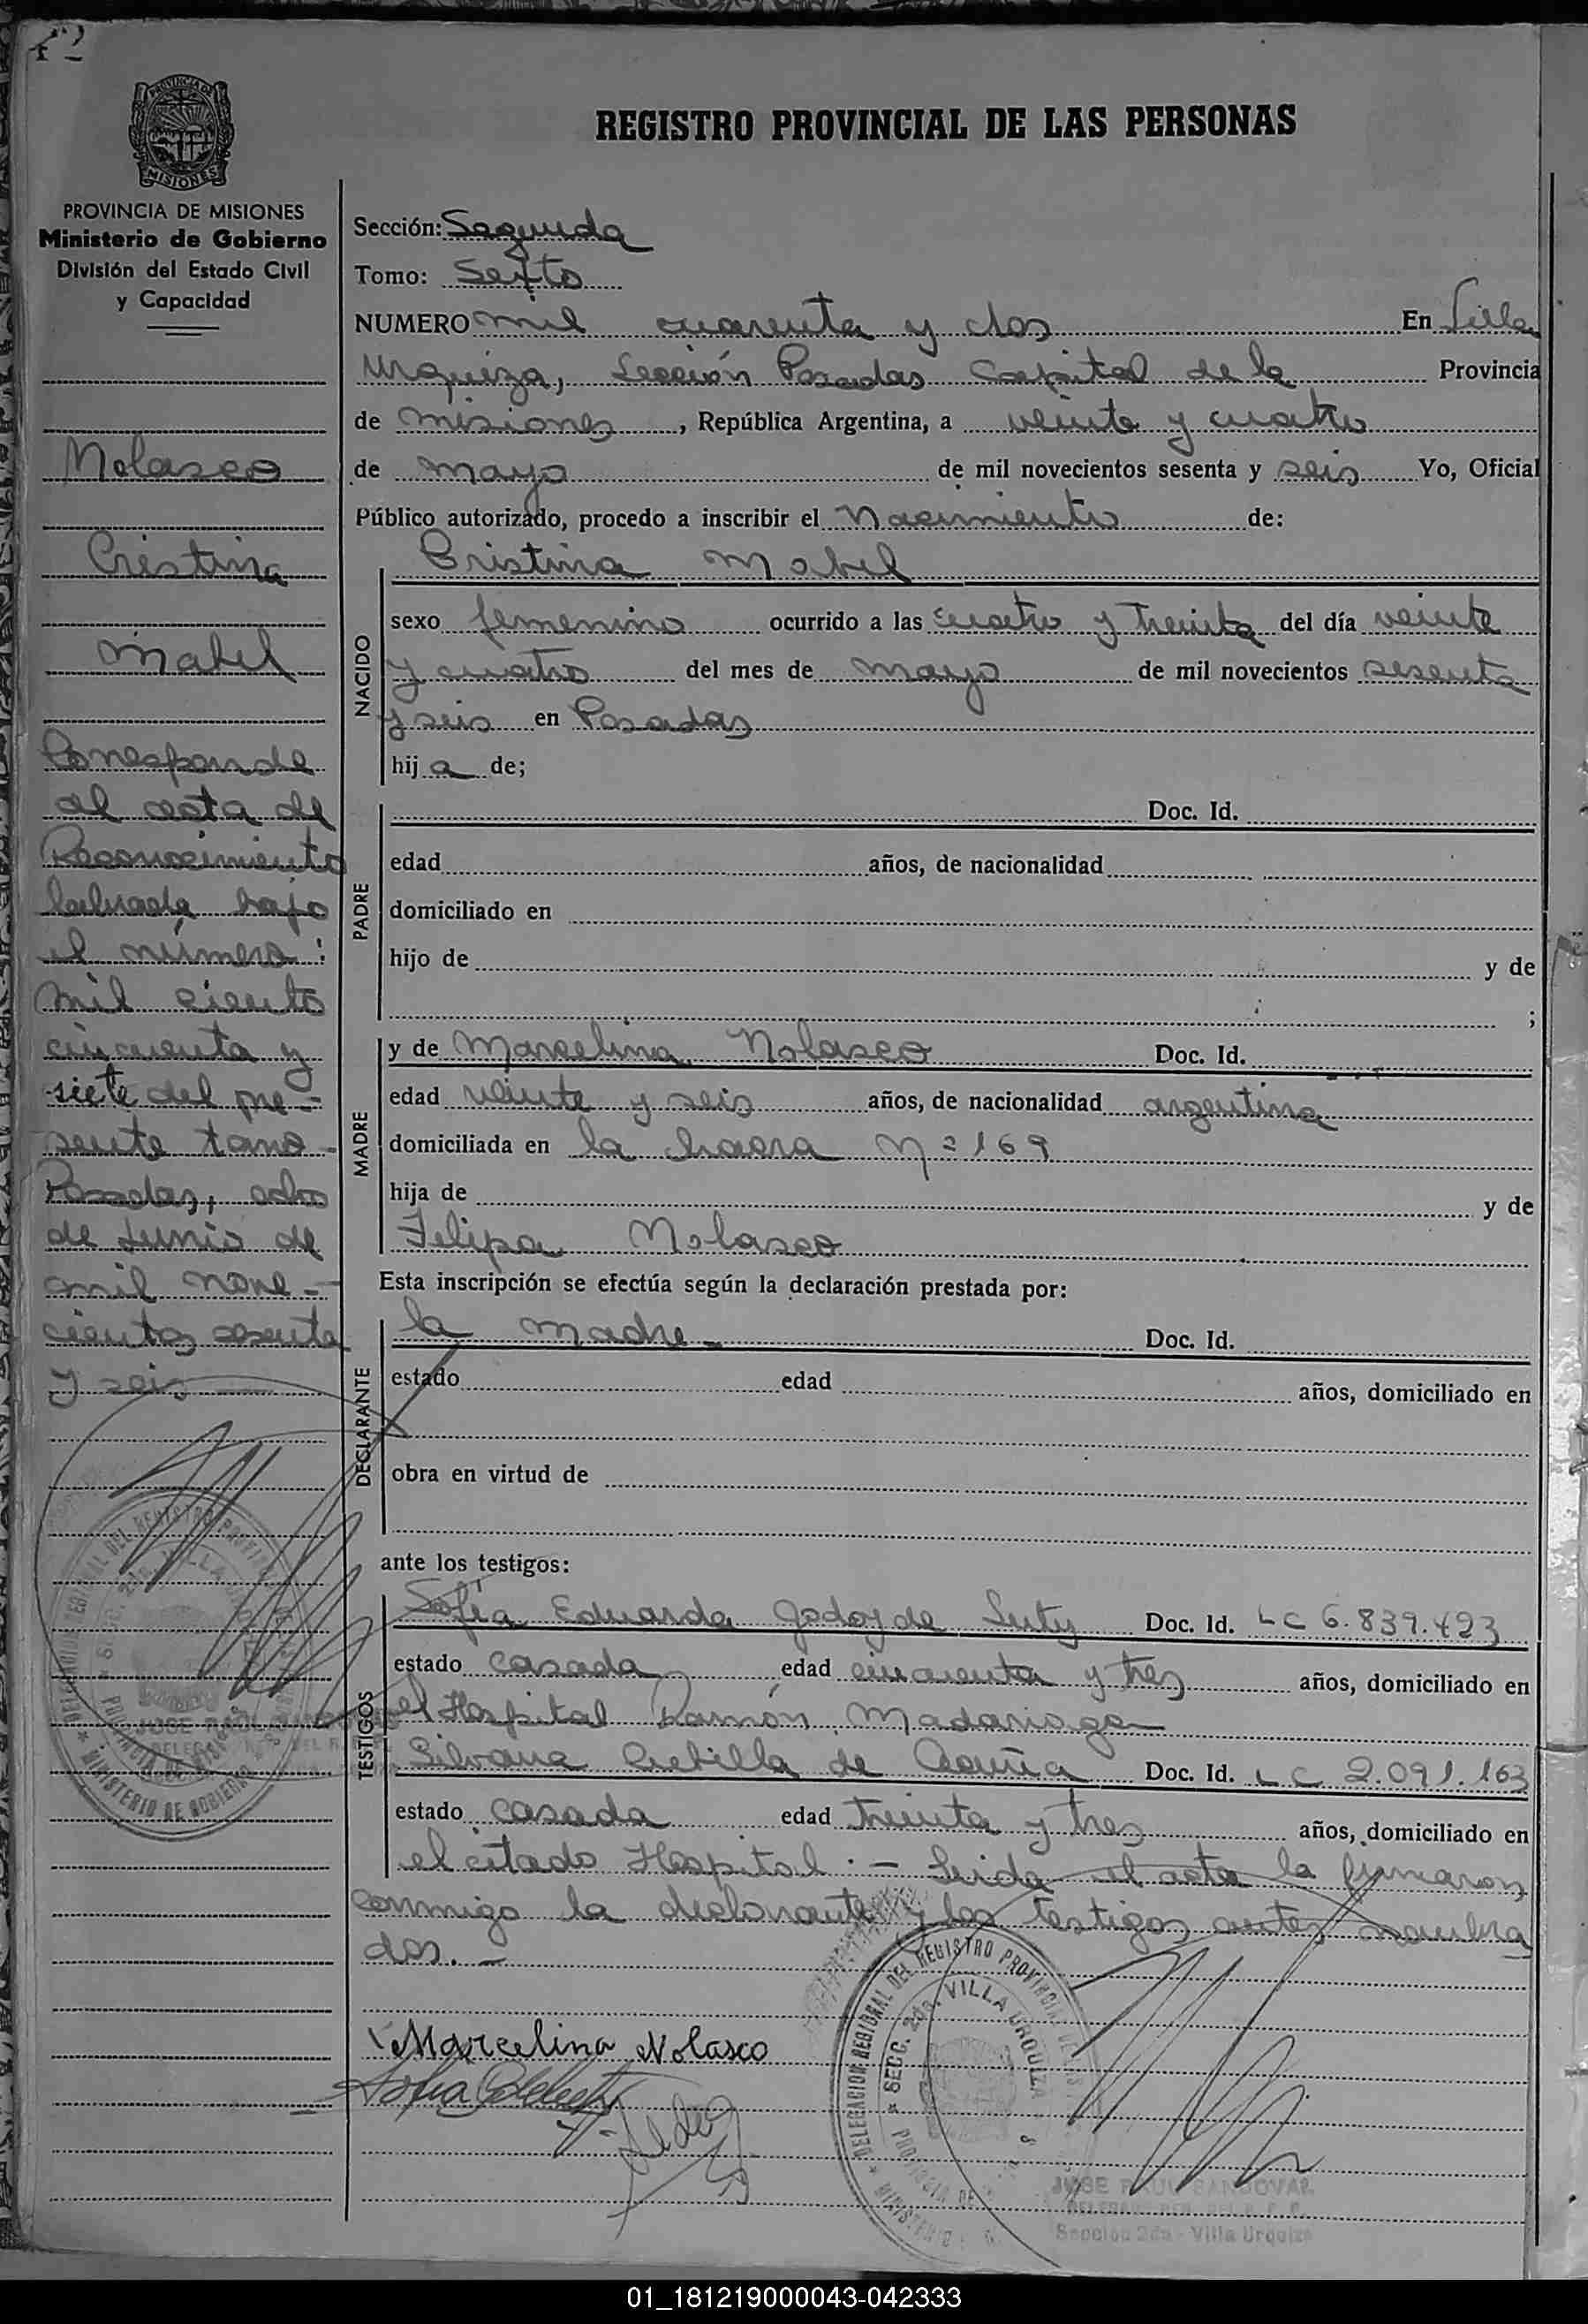 REGISTRO PROVINCIAL DE LAS PERSONAS
MISIONES
PROVINCIA DE MISIONES
Ministerio de Gobierno
División del Estado Civil
y Capacidad
Nolasco
Cristina
Mabel
Corresponde
al acta de
Reconocimiento
labrada bajo
el número:
mil ciento
cincuenta y
siete del pre-
sente tomo-
Posadas, ocho
de Junio de
mil nove-
cientos sesenta
y seis
Sección: Segunda
Tomo: Sexto
NUMERO mil cuarenta y dos En Villa
Urquiza, Sección Posadas Capital de la Provincia
de misiones, República Argentina, a veinte y cuatro
de mayo de mil novecientos sesenta y seis Yo, Oficial
Público autorizado, procedo a inscribir el Nacimiento de:
NACIDO
Cristina Mabel
sexo femenino ocurrido a las cuatro y treinta del día veinte
y cuatro del mes de mayo de mil novecientos sesenta
y seis en Posadas
hija de;
PADRE
Doc. Id.
edad años, de nacionalidad
domiciliado en
hijo de y de
;
MADRE
y de Marcelina Nolasco Doc. Id.
edad veinte y seis años, de nacionalidad argentina
domiciliada en la chacra Nº 169
hija de y de
Felipa Nolasco
Esta inscripción se efectúa según la declaración prestada por:
DECLARANTE
la madre- Doc. Id.
estado edad años, domiciliado en
obra en virtud de
ante los testigos:
TESTIGOS
Sofía Eduarda Godoy de Doc. Id. LC 6.839.423
estado casada edad cincuenta y tres años, domiciliado en
el Hospital Ramón Madariaga
Silvana de Acuña Doc. Id. LC 2.091.163
estado casada edad treinta y tres años, domiciliado en
el citado Hospital.- Leida el acta la firmaron
conmigo la declarante y los testigos antes nombra
dos.-
Marcelina Nolasco
DELEGACION REGIONAL DEL REGISTRO PROVINCIAL
SECC. 2da. VILLA URQUIZA
PROVINCIA DE
MINISTERIO DE GOBIERNO
JOSE RAUL SANDOVAL
Sección 2da - Villa Urquiza
01_181219000043-042333